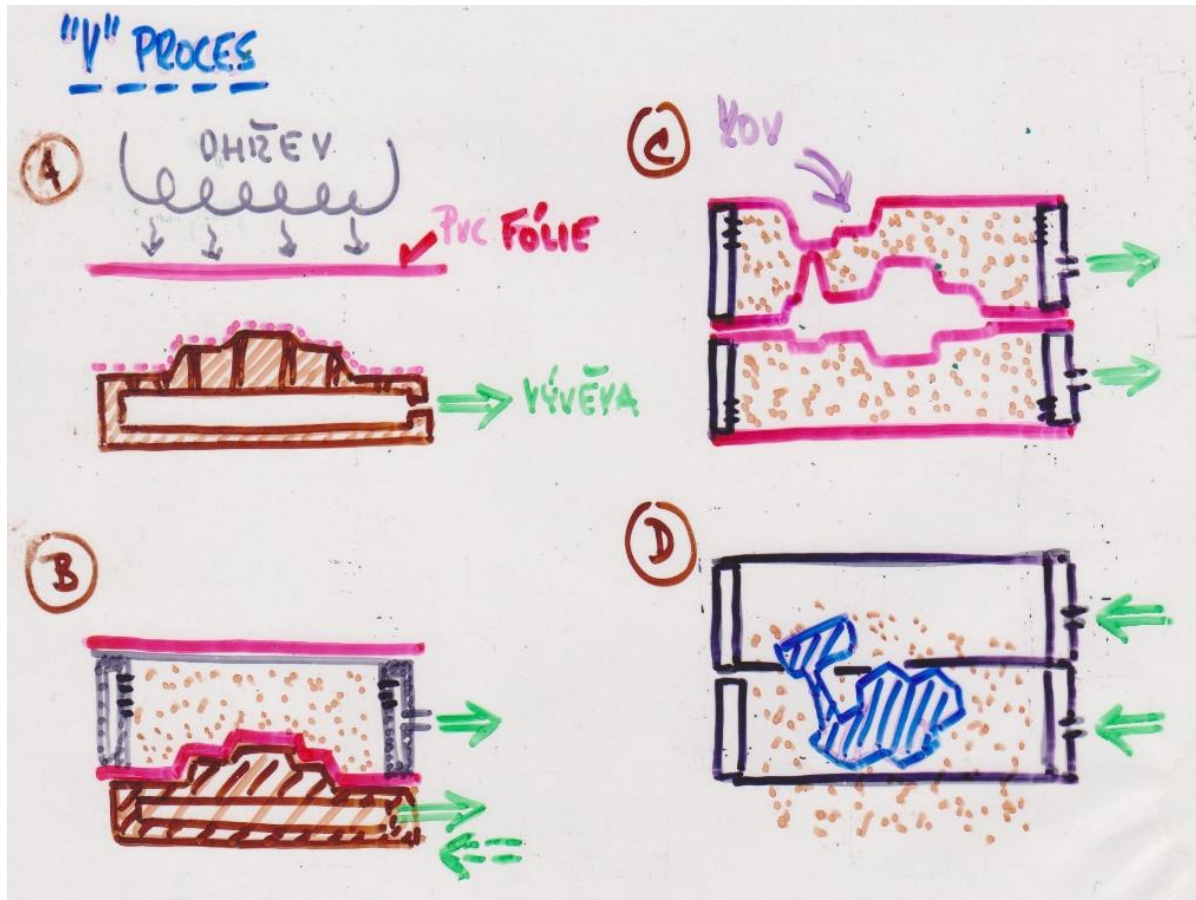 "V" PROCES
A
OHŘEV
PVC FÓLIE
VÝVĚVA
B
C
KOV
D